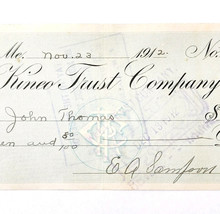 Me. Nov. 23 1912. No.
Kineo Trust Company
John Thomas $
en and 80/100
E. A. Sampson